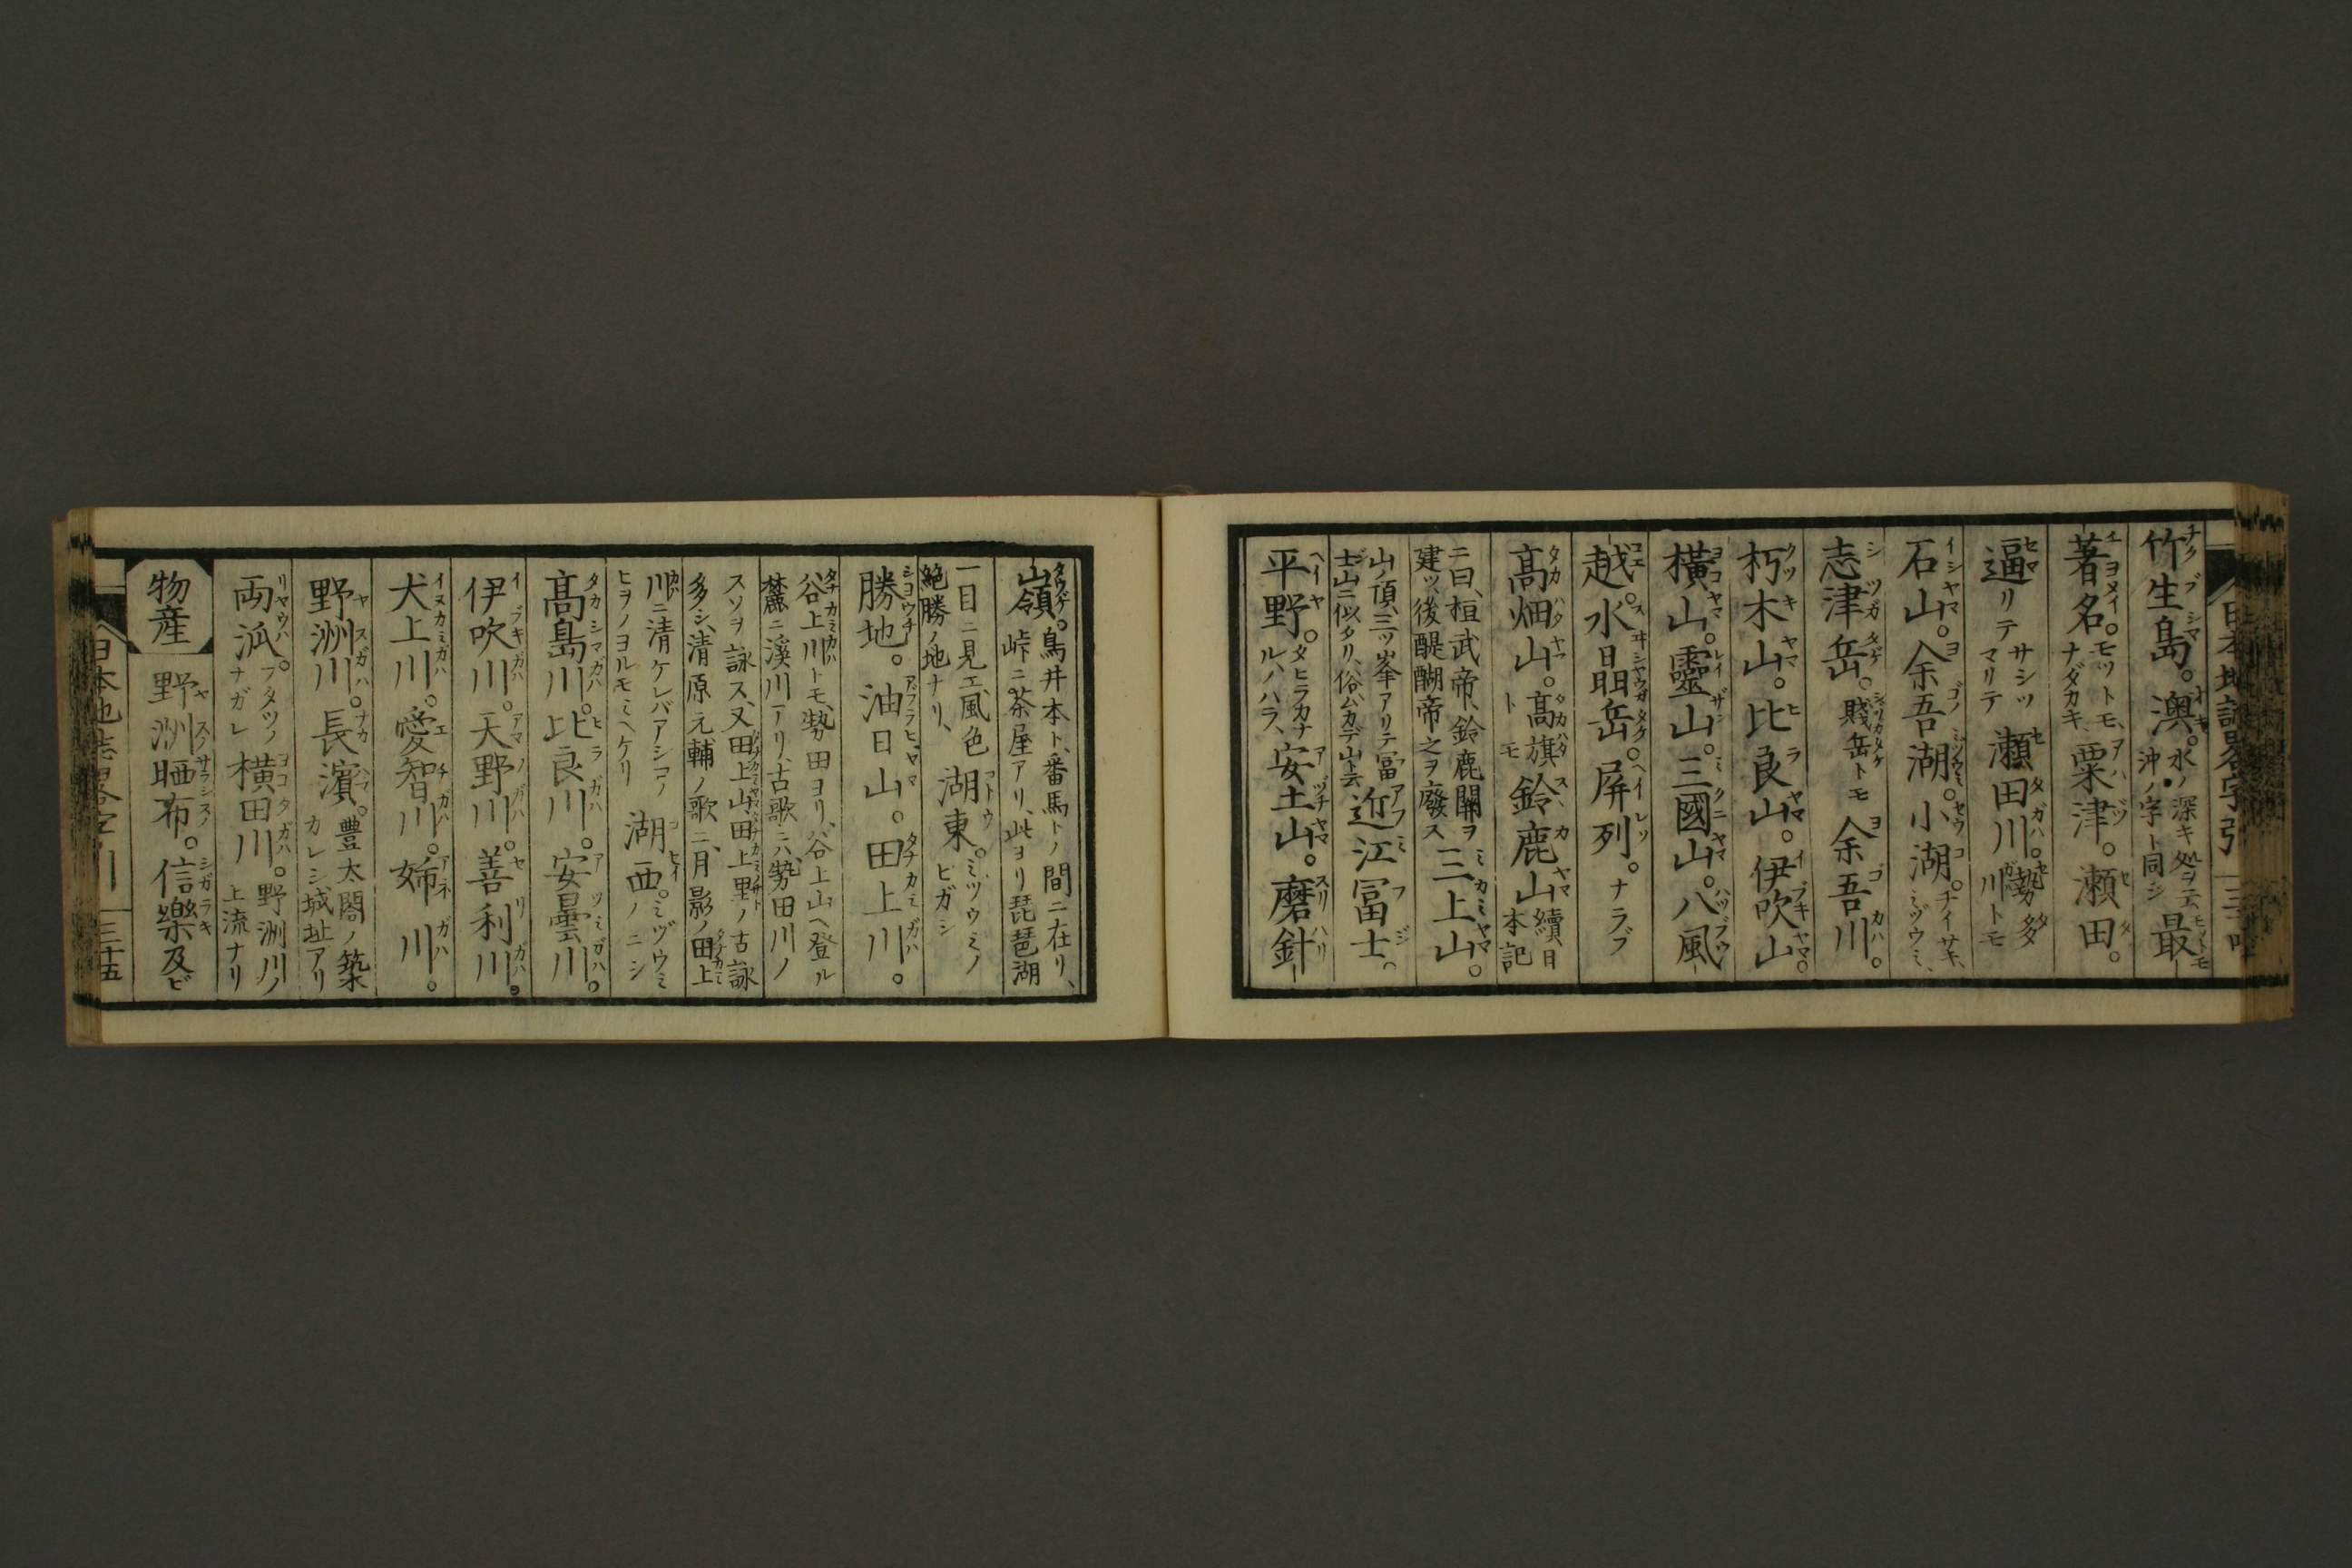 竹生島。澳。水ノ深キ処ヲ云沖ノ字ト同シ最
著名。モツトモ、ナダカキ、粟津。瀬田。
逼リテサシツマリテ瀬田川。勢多川トモ
石山。余吾湖。小湖。チイサキ、ミヅウミ、
志津岳。賤岳トモ余吾川。
朽木山。比良山。伊吹山。
横山。靈山。三國山。八風
越。水晶岳。屏列。ナラブ
髙畑山。髙旗トモ鈴鹿山續日本記
ニ曰、桓武帝、鈴鹿關ヲ建ツ、後醍醐帝之ヲ廢ス三上山。
山ノ頂、三ツ峯アリテ冨士山ニ似タリ、俗ムカデ山ト云近江冨士。
平野。タヒラカナルノハラ、安土山。磨針
山嶺。鳥井本ト、番馬トノ間ニ在リ、峠ニ茶屋アリ、此ヨリ琵琶湖
一目ニ見エ風色絶勝ノ地ナリ、湖東。ミヅウミノヒガシ
勝地。油日山。田上川。
谷上川トモ、勢田ヨリ、谷上山ヘ登ル麓ニ溪川アリ、古歌ニハ勢田川ノ
スソヲ詠ス、又田上山、田上野ノ古詠多シ、清原元輔ノ歌ニ、月影ノ田上
川ニ清ケレバアシロノヒヲノヨルモミヘケリ湖西。ミヅウミノニシ
髙島川。比良川。安曇川。
伊吹川。天野川。善利川。
犬上川。愛智川。姉川。
野洲川。長濱。豊太閤ノ築カレシ城址アリ
両派。フタツノナガレ横田川。野洲川ノ上流ナリ
物産 野洲晒布。信樂及ビ
三十五